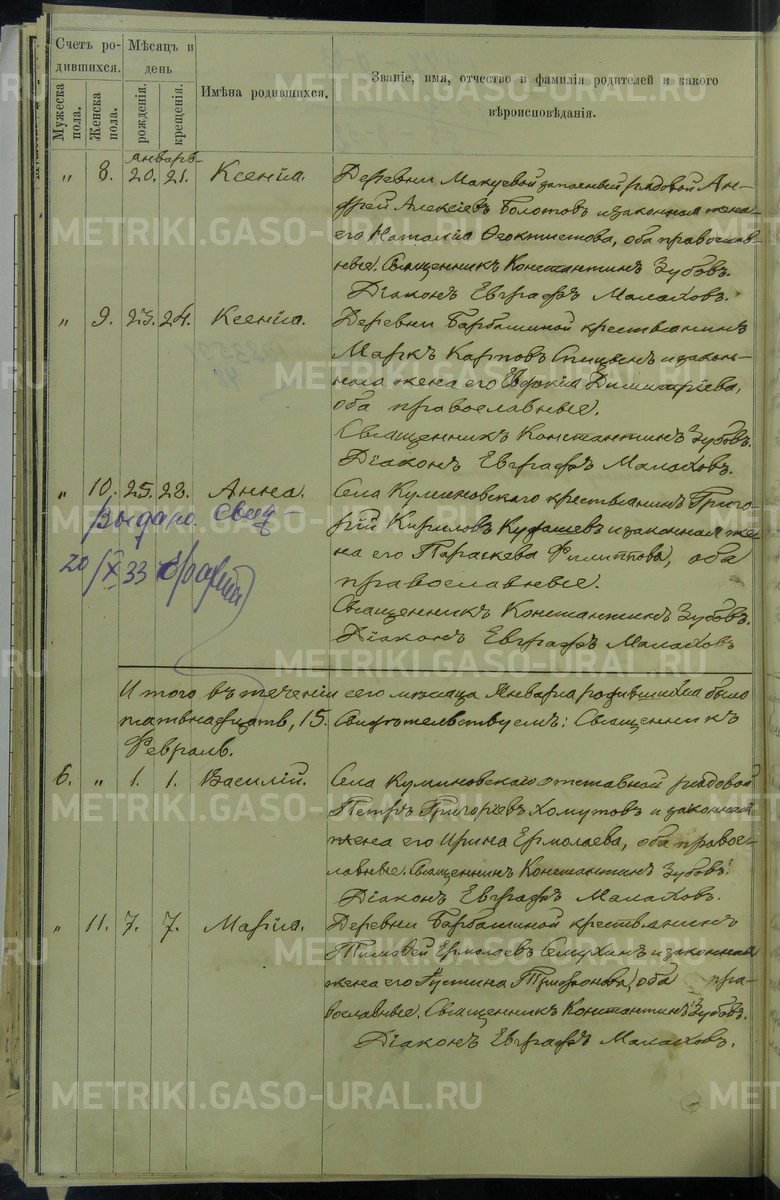 Счетъ ро-
дившихся.
Мѣсяцъ и
день
Имѣна родившихся.
Званіе, имя, отчество и фамилія родителей и какого
вѣроисповѣданія.
Мужеска
пола.
Женска
пола.
рожденія.
крещенія.
Январь
" 8. 20. 21. Ксенія. Деревни Макуевой запасный рядовой Ан-
дрей Алексіевъ Болотовъ и законная жена
его Наталія Феоктистова, оба православ-
ные. Священникъ Константинъ Зубовъ.
Діаконъ Евграфъ Малаховъ.
" 9. 23. 24. Ксенія. Деревни Барбашиной крестьянинъ
Маркъ Карповъ Спицынъ и закон-
ная жена его Евдокія Димитріева,
оба православные.
Священникъ Константинъ Зубовъ.
Діаконъ Евграфъ Малаховъ.
" 10. 25. 28. Анна. Села Куминовскаго крестьянинъ Григо-
рій Кириловъ Кудашевъ и законная же-
на его Параскева Филиппова, оба
православные.
Священникъ Константинъ Зубовъ.
Діаконъ Евграфъ Малаховъ
Выдано свид-
20/X 33
Итого въ теченіи сего мѣсяца Января родившихся было
пятьнадцать, 15. Свидѣтельствуемъ: Священникъ
Февраль.
6. " 1. 1. Василій. Села Куминовскаго отставной рядовой
Петръ Григоріевъ Хомутовъ и законная
жена его Ирина Ермолаева, оба право-
славные. Священникъ Константинъ Зубовъ.
Діаконъ Евграфъ Малаховъ.
" 11. 7. 7. Марія. Деревни Барбашиной крестьянинъ
Тимофей Ермолаевъ Семухинъ и законная
жена его Устина Трифонова, оба пра-
вославные. Священникъ Константинъ Зубовъ.
Діаконъ Евграфъ Малаховъ.
METRIKI.GASO-URAL.RU